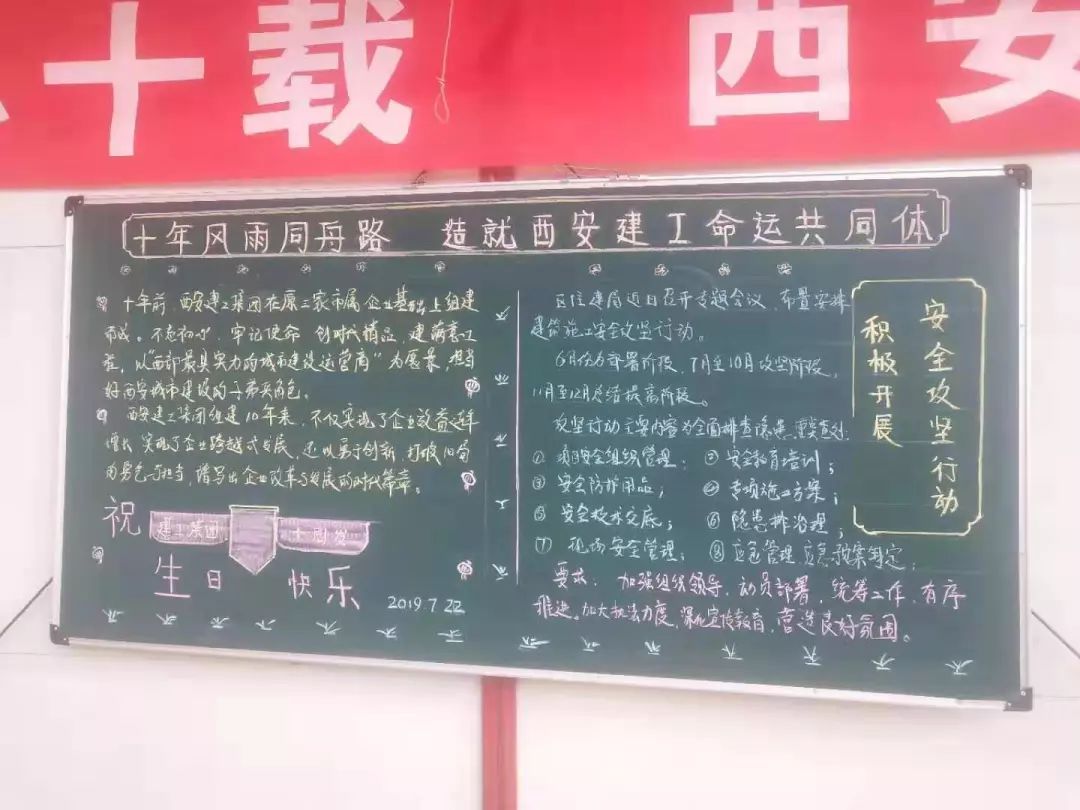 十载 西安
十年风雨同舟路 造就西安建工命运共同体
十年前,西安建工集团在原三家市属企业基础上组建
而成。不忘初心,牢记使命,创时代精品,建精意工
程,以“西部最具实力的城市建设运营商”为愿景,担当
好西安城市建设的子弟兵角色。
西安建工集团组建10年来,不仅实现了企业效益逐年
增长,实现了企业跨越式发展,还以勇于创新、打破旧局
的勇气与担当,谱写出企业改革与发展的时代篇章。
祝
建工集团 十周岁
生日快乐
2019.7.22
区住建局近日召开专题会议,布置安排
建筑施工安全攻坚行动。
6月份为部署阶段,7月至10月攻坚阶段,
11月至12月总结提高阶段。
攻坚行动主要内容为全面排查隐患,重点查处
① 项目安全组织管理; ② 安全教育培训;
③ 安全防护用品; ④ 专项施工方案;
⑤ 安全技术交底; ⑥ 隐患排治理;
⑦ 现场安全管理; ⑧ 应急管理,应急预案制定;
要求:加强组织领导,动员部署,统筹工作,有序
推进。加大执法力度,深化宣传教育,营造良好氛围。
积极开展
安全攻坚行动